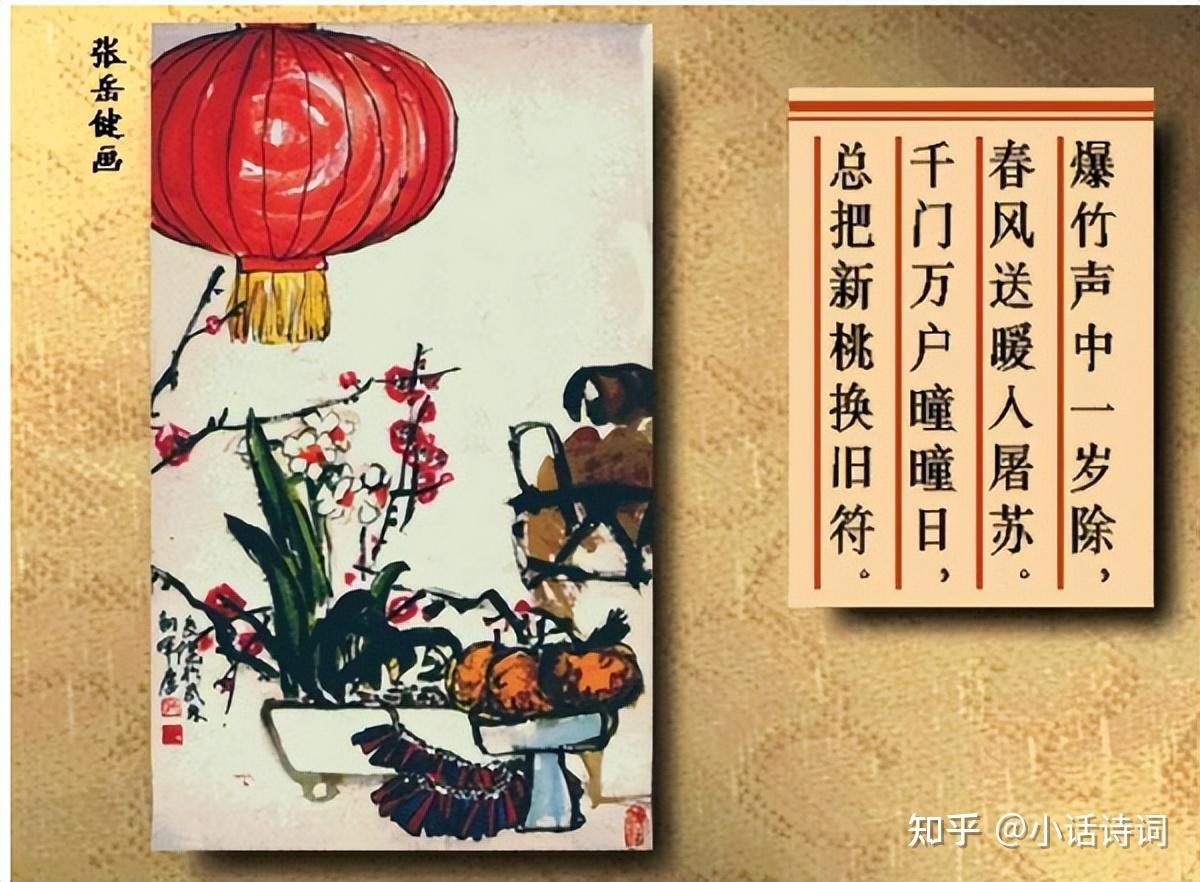 张岳健画
爆竹声中一岁除，
春风送暖人屠苏。
千门万户曈曈日，
总把新桃换旧符。
知乎 @小话诗词